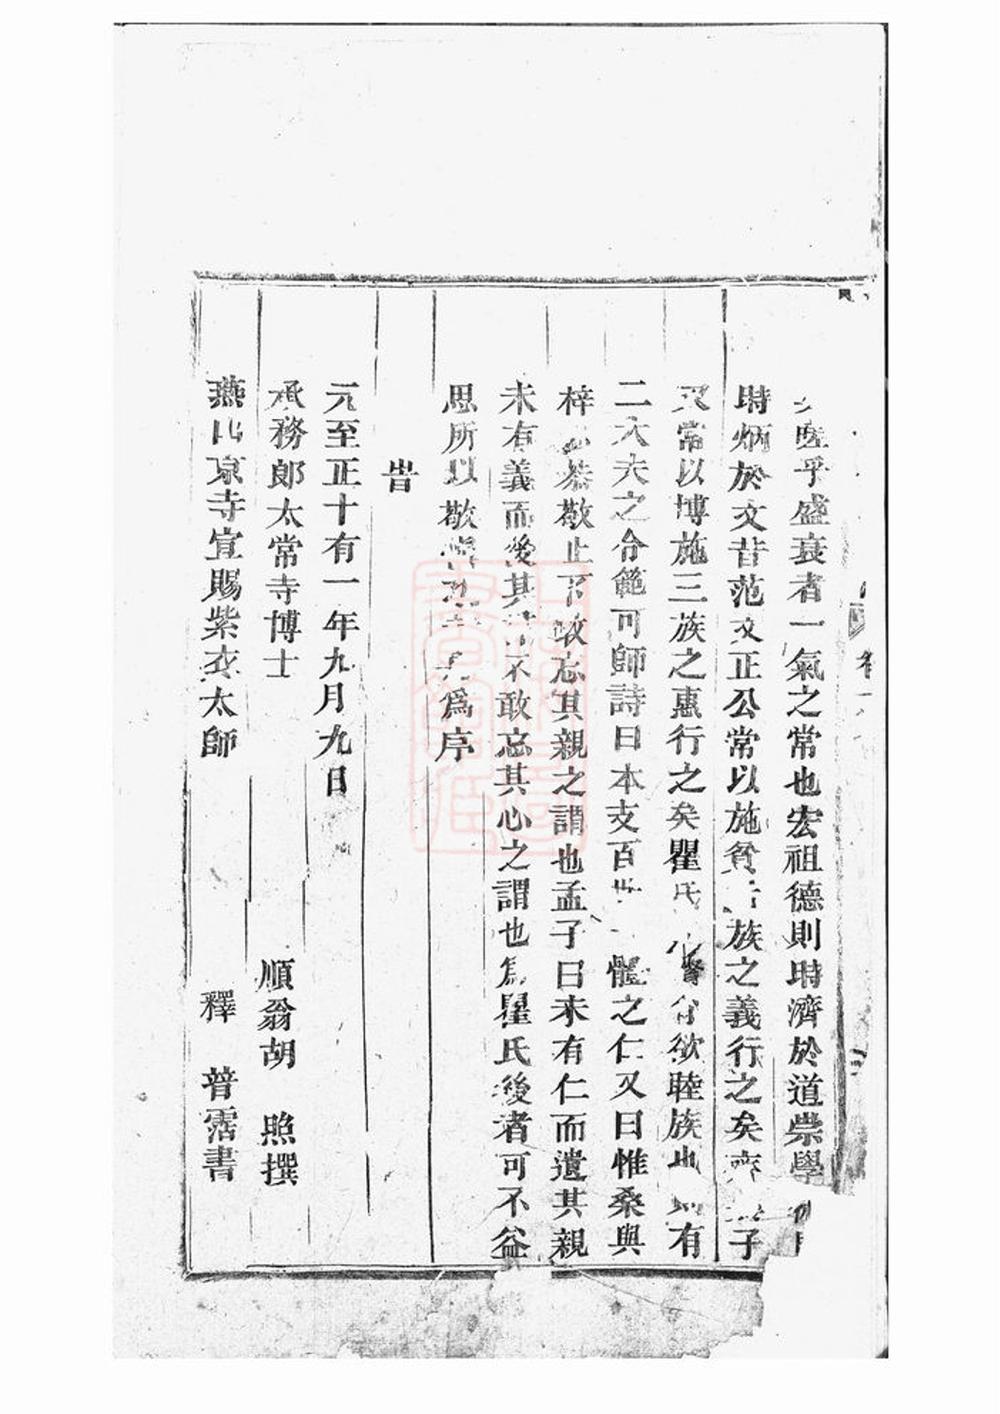 嗟乎盛衰者一氣之常也宏祖德則時濟於道崇學
時炳於文昔范文正公常以施貧族之義行之矣齊子
又常以博施三族之惠行之矣瞿氏欲睦族也則有
二大夫之令範可師詩曰本支百世體之仁又曰惟桑與
梓必恭敬止不敢忘其親之謂也孟子曰未有仁而遺其親
未有義而後其不敢忘其心之謂也為瞿氏後者可不益
思所以敬為序
旹
元至正十有一年九月九日
承務郎太常寺博士 順翁胡 照撰
燕山京寺宣賜紫衣太師 釋 普霑書